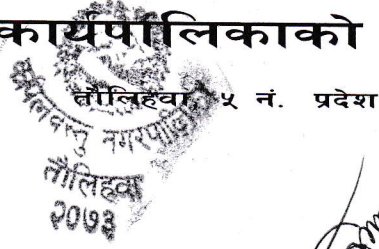 कार्यपालिकाको
तौलिहवा, ५ नं. प्रदेश
कपिलवस्तु नगरपालिका
तौलिहवा
२०७३